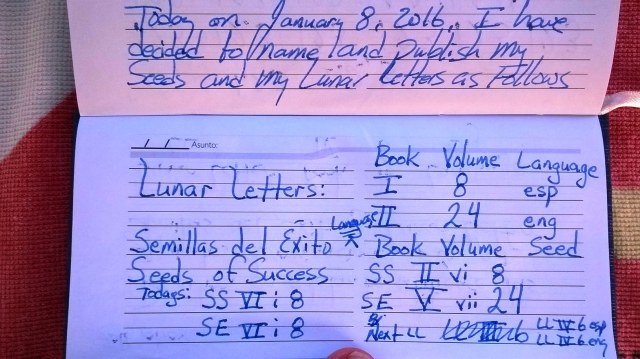 Today on January 8, 2016, I have
decided to name and Publish my
Seeds and my Lunar Letters as Follows
Asunto:
Lunar Letters:
Book Volume Language
I 8 esp
II 24 eng
Language
Semillas del Exito
Seeds of Success
Todays: SS VI i 8
SE VI i 8
Book Volume Seed
SS II vi 8
SE V vii 24
Next LL
LL IV 6 esp
LL IV 6 eng